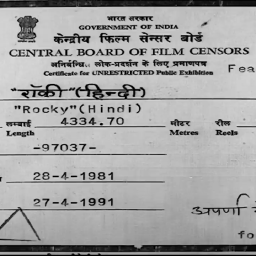 भारत सरकार
GOVERNMENT OF INDIA
केन्द्रीय फिल्म सेन्सर बोर्ड
CENTRAL BOARD OF FILM CENSORS
अनिर्बन्धित लोक-प्रदर्शन के लिए प्रमाणपत्र
Certificate for UNRESTRICTED Public Exhibition
Fea
"रॉकी" (हिन्दी)
"Rocky"(Hindi)
लम्बाई 4334.70 मीटर रील
Length Metres Reels
-97037-
28-4-1981
27-4-1991
अपर्णा
fo